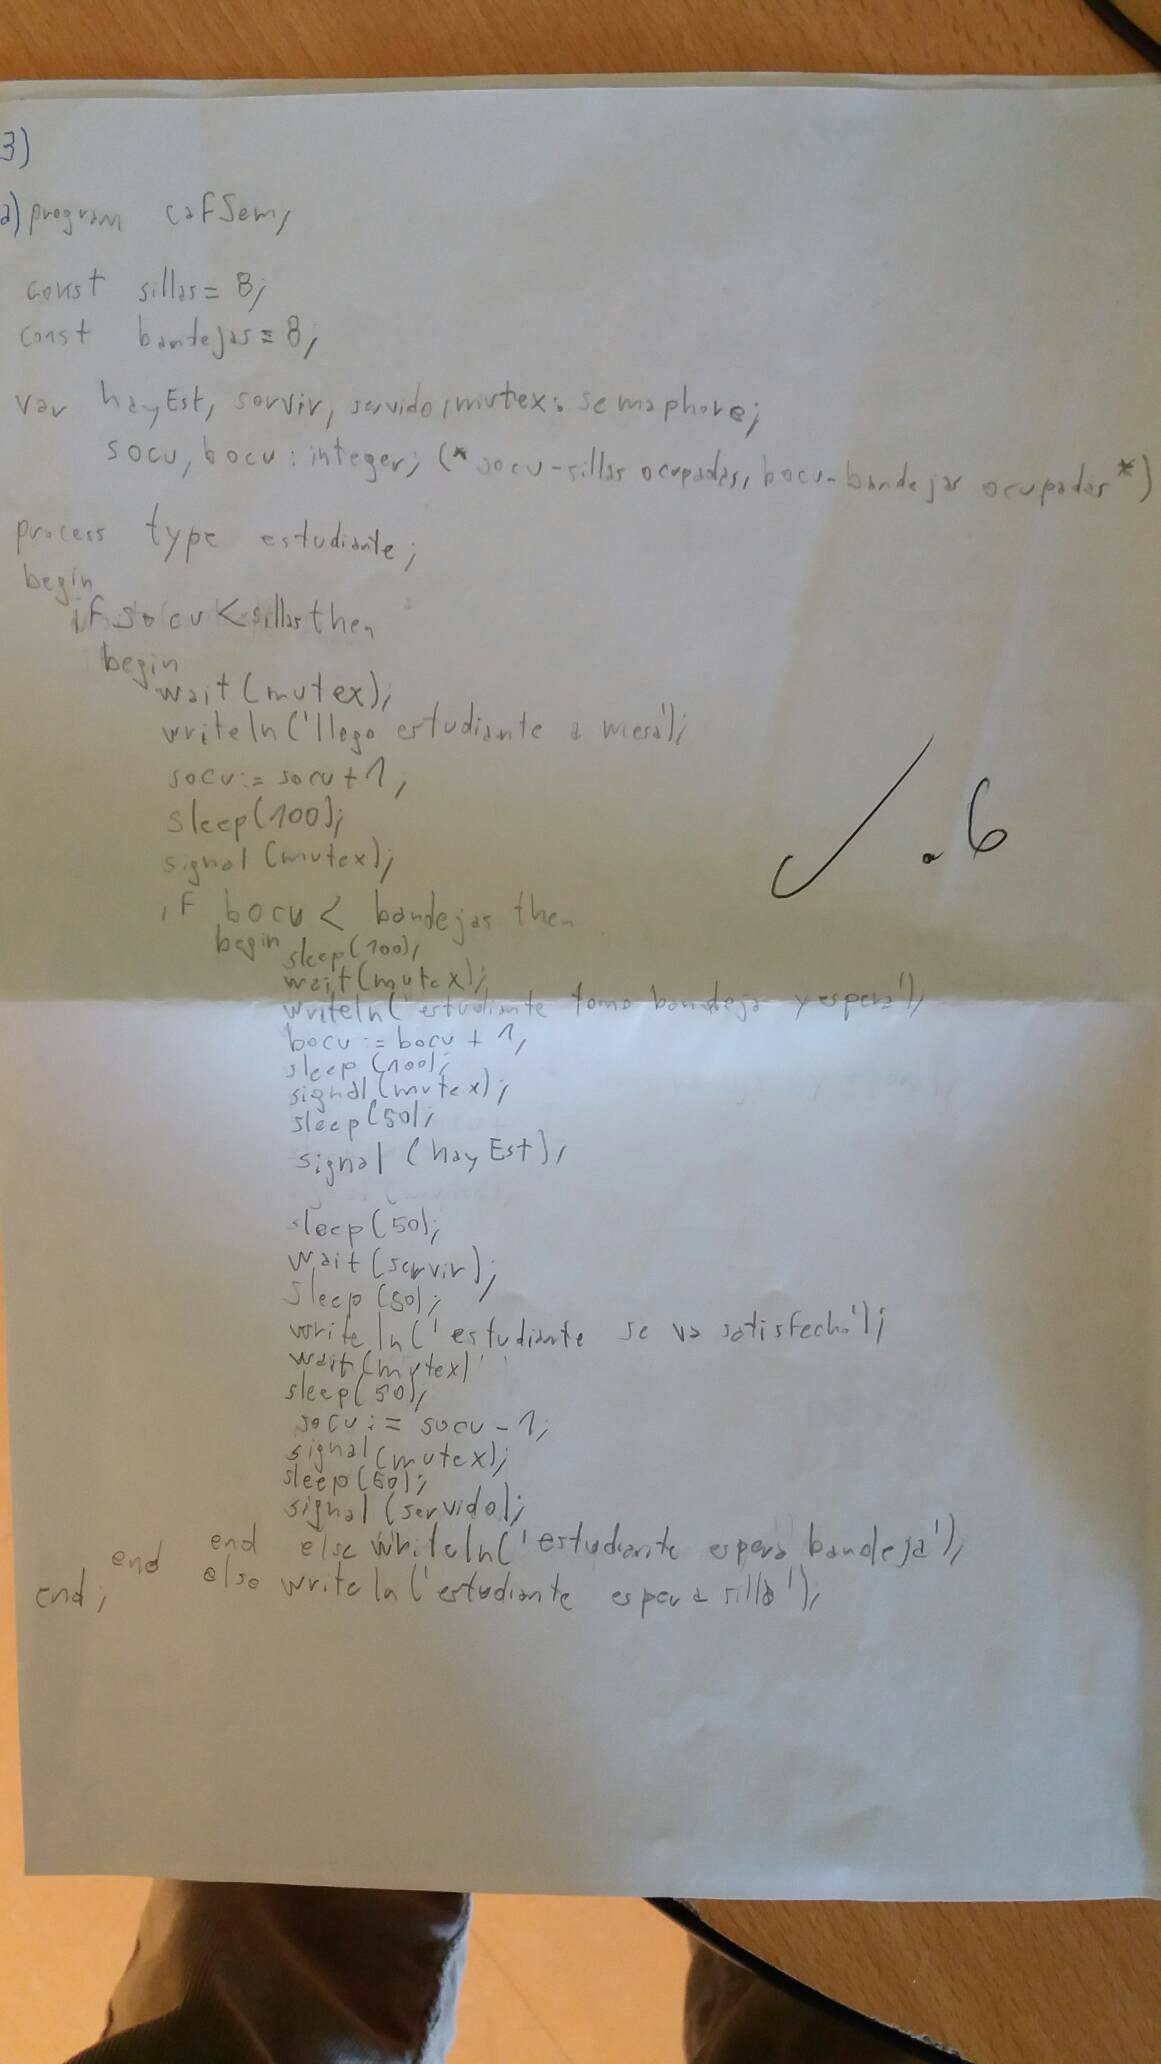 3)
a) program cafSem;
const sillas = 8;
const bandejas = 8;
var hayEst, servir, servido, mutex: semaphore;
socu, bocu: integer; (* socu-sillas ocupadas, bocu-bandejas ocupadas *)
process type estudiante;
begin
if socu < sillas then
begin
wait (mutex);
writeln ('llego estudiante a mesa');
socu := socu + 1;
sleep(100);
signal (mutex);
if bocu < bandejas then
begin sleep(100);
wait(mutex);
writeln('estudiante toma bandeja y espera');
bocu := bocu + 1;
sleep (100);
signal (mutex);
sleep (50);
signal (hayEst);
sleep (50);
wait (servir);
sleep (50);
writeln ('estudiante se va satisfecho');
wait (mutex)
sleep (50);
socu := socu - 1;
signal (mutex);
sleep (50);
signal (servido);
end else writeln('estudiante espera bandeja');
end else writeln ('estudiante espera silla');
end;
.6